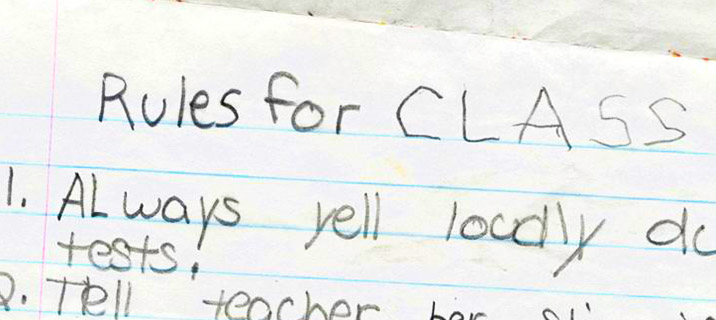 Rules for CLASS
1. ALways yell loudly du
tests.
2. Tell teacher her